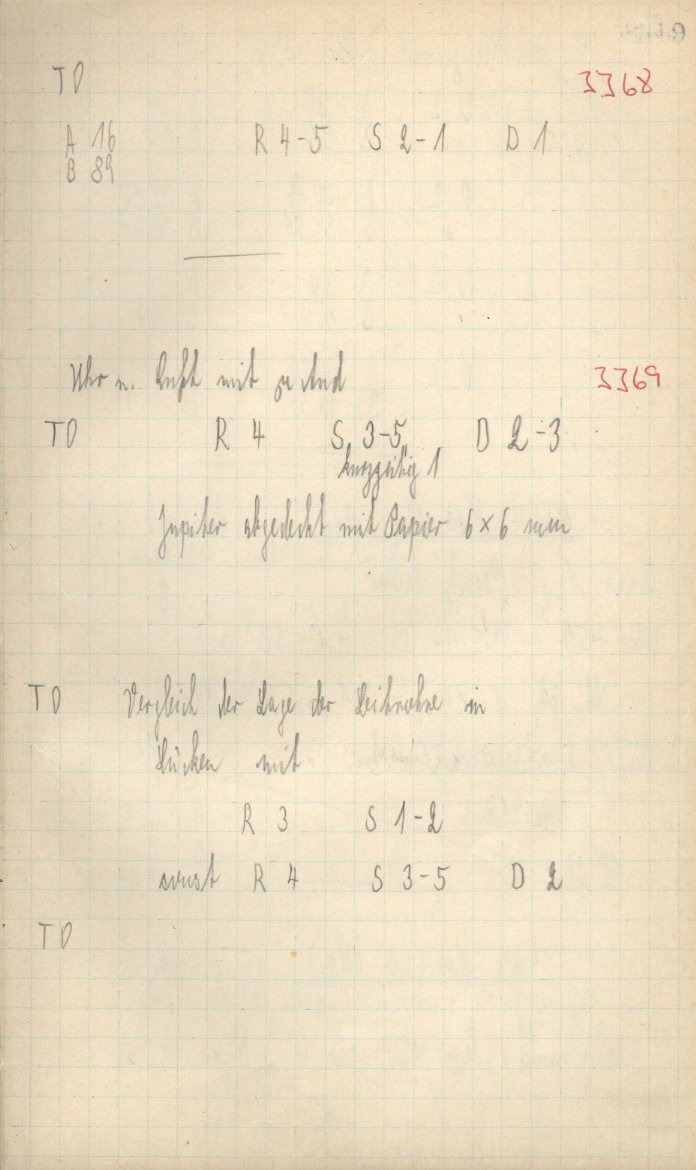 TD 3368
A 16 R 4-5 S 2-1 D 1
B 89
Uhr u. Luft mit zu 3369
TD R 4 S 3-5 D 2-3
kurzzeitig 1
Jupiter abgedeckt mit Papier 6 x 6 mm
TD Vergleich der Lage der in
Lücken mit
R 3 S 1-2
sonst R 4 S 3-5 D 2
TD